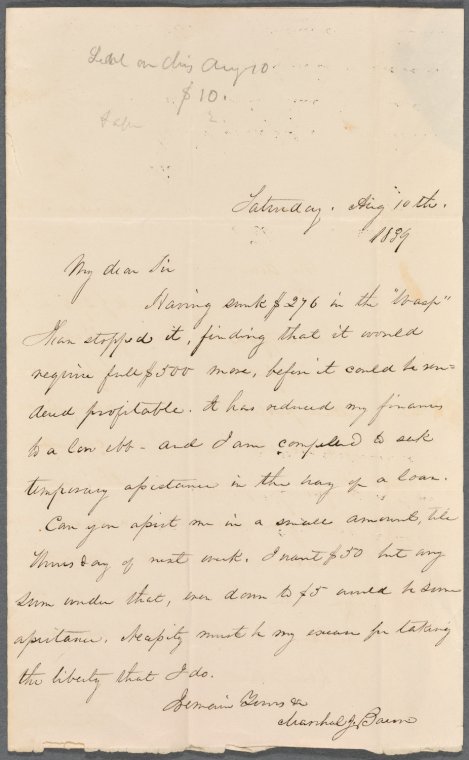 Lent on this Aug 10.
$10.
Saturday. Aug 10th.
1839
My dear Sir
Having sunk $276 in the "Wasp"
I have stopped it, finding that it would
require full $500 more, before it could be ren-
dered profitable. It has reduced my finances
to a low ebb - and I am compeled to seek
temporary assistance in the way of a loan.
Can you assist me in a small amount, till
Thursday of next week. I want $50 but any
sum under that, even down to $5 would be some
assistance. Necessity must be my excuse for taking
the liberty that I do.
I remain Yours &c
Marshal J Bacon